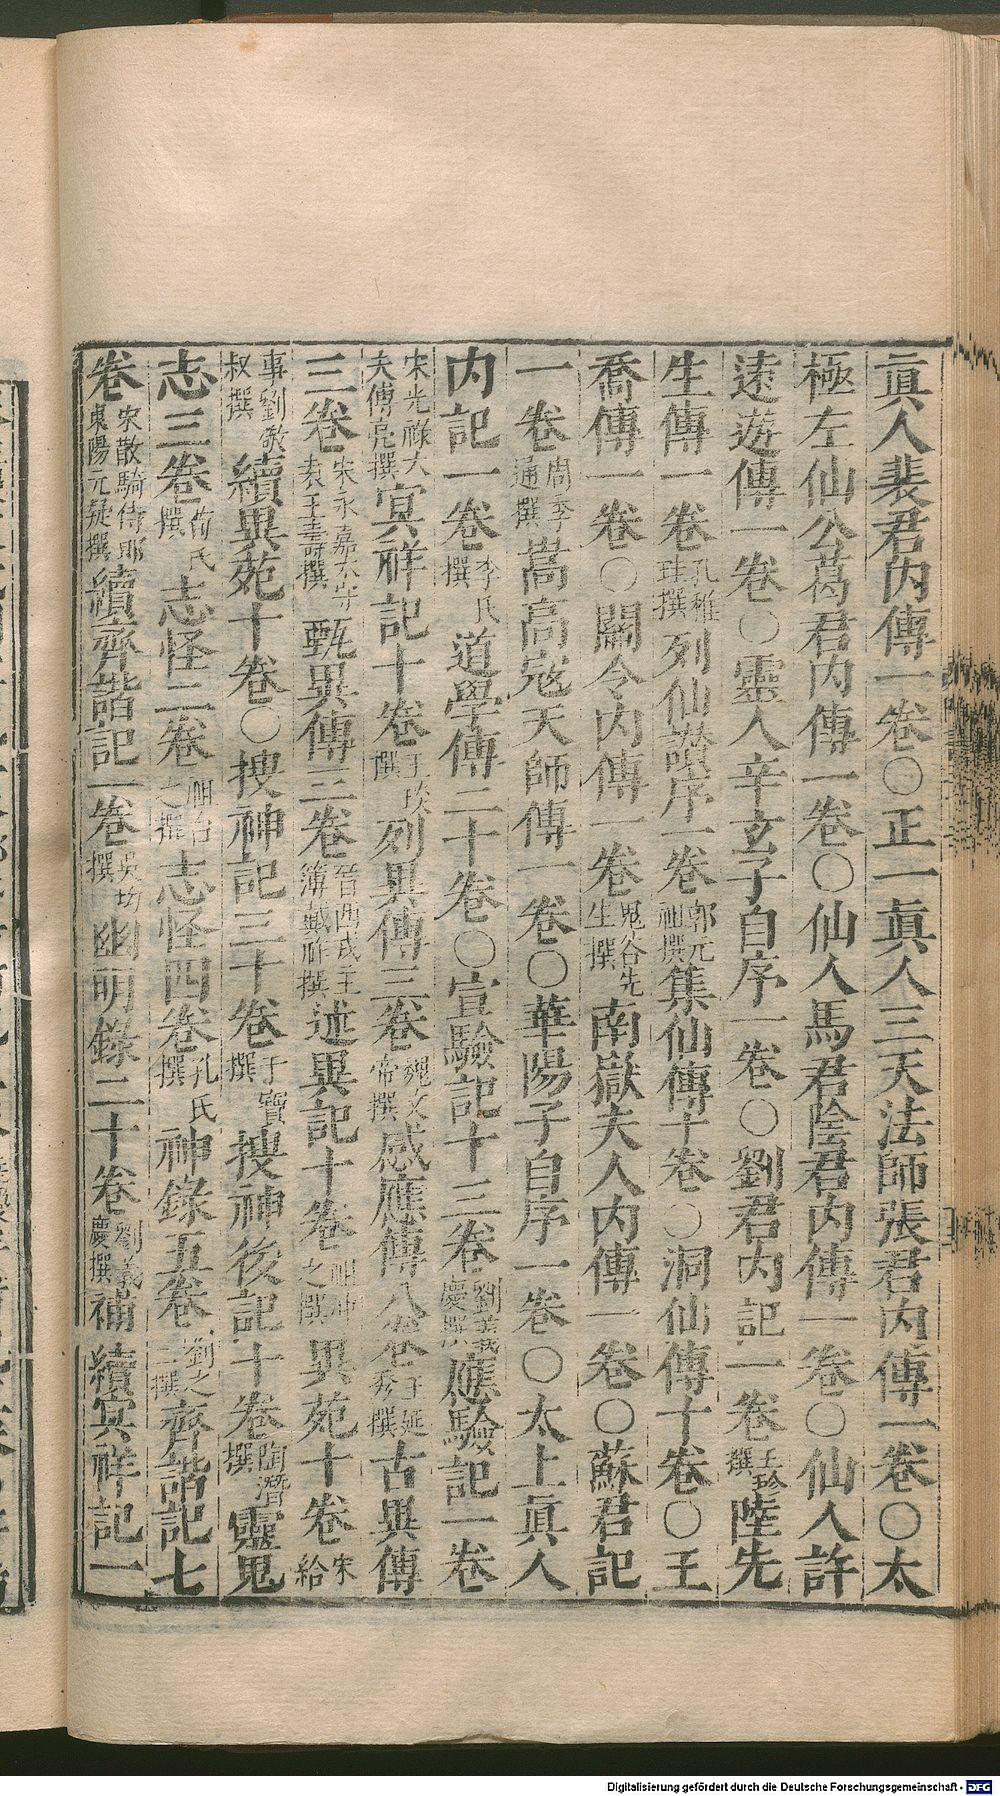 眞人裴君内傳一卷〇正一眞人三天法師張君内傳一卷〇太
極左仙公葛君内傳一卷〇仙人馬君陰君内傳一卷〇仙人許
遠遊傳一卷〇靈人辛玄子自序一卷〇劉君内記一卷王珍撰陸先
生傳一卷孔稚珪撰列仙讚序一卷郭元祖撰集仙傳十卷〇洞仙傳十卷〇王
喬傳一卷〇關令内傳一卷鬼谷先生撰南嶽夫人内傳一卷〇蘇君記
一卷周季通撰嵩高寇天師傳一卷〇華陽子自序一卷〇太上眞人
内記一卷李氏撰道學傳二十卷〇宣驗記十三卷劉義慶撰應驗記一卷
宋光祿大夫傅亮撰冥祥記十卷王琰撰列異傳三卷魏文帝撰感應傳八卷王延秀撰古異傳
三卷宋永嘉太守袁王壽撰甄異傳三卷晉西戎主簿戴祚撰述異記十卷祖冲之撰異苑十卷宋給
事劉敬叔撰續異苑十卷〇搜神記三十卷于寶撰搜神後記十卷陶潛撰靈鬼
志三卷荀氏撰志怪二卷祖台之撰志怪四卷孔氏撰神錄五卷劉之二撰齊諧記七
卷宋散騎侍郎東陽元疑撰續齊諧記一卷吳均撰幽明錄二十卷劉義慶撰補續冥祥記一
Digitalisierung gefördert durch die Deutsche Forschungsgemeinschaft - DFG